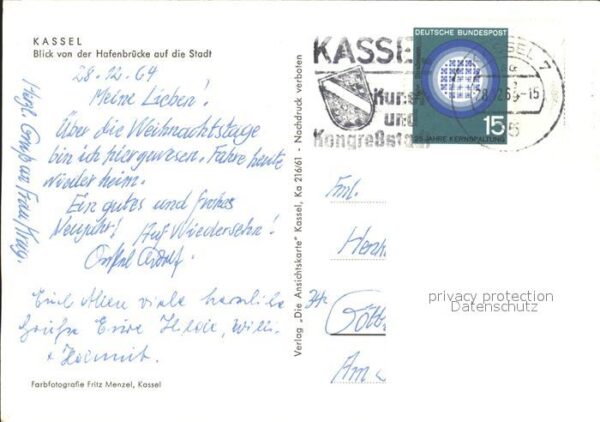 KASSEL
Blick von der Hafenbrücke auf die Stadt
28.12.64
Meine Lieben!
Über die Weihnachtstage
bin ich hier gewesen. Fahre heute
wieder heim.
Ein gutes und frohes
Neujahr! Auf Wiedersehn!
Onkel Adolf.
Herzl. Gruß an Frau
Euch Allen viele herzliche
Grüße Eure Hilde, Willi
+ Helmut.
Farbfotografie Fritz Menzel, Kassel
Verlag „Die Ansichtskarte" Kassel, Ka 216/61 - Nachdruck verboten
KASSEL
Kunst
und
Kongreßstadt
DEUTSCHE BUNDESPOST
15
25 JAHRE KERNSPALTUNG
KASSEL 7
-15
Fml.
34
Gött
Am
privacy protection
Datenschutz